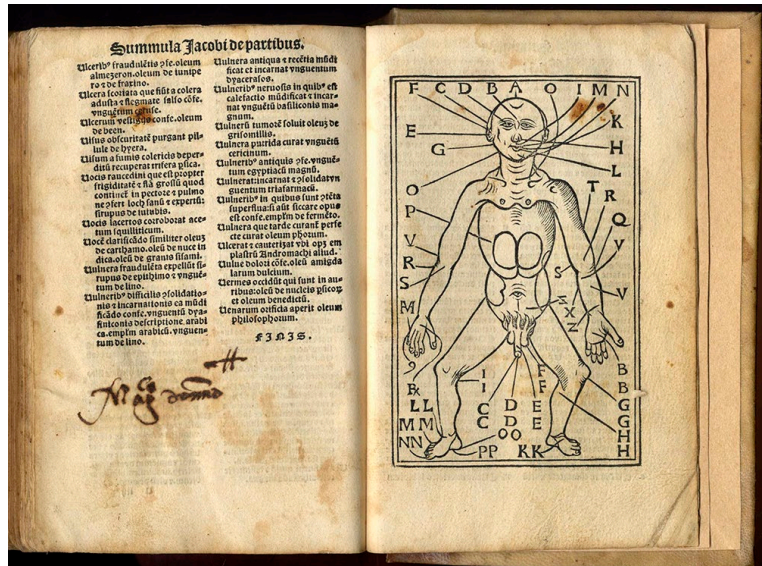 Summula Jacobi de partibus.
Ulcerib⁹ fraudulētis ɔfe.oleum
almezeron.oleum de iunipe
ro ⁊ de fraxino.
Ulcera scoriata que fiūt a colera
adusta ⁊ flegmate falso cōfe.
vnguētum
Ulcerum confe.oleum
de been.
Uisus obscuritatē purgant pil-
lule de hyera.
Uisum a fumis colericis deper-
ditū recuperat trifera psica.
Uocis raucedini que est propter
frigiditatē ⁊ grossū quod
in pectore ⁊ pulmo
ne ɔfert locħ sanū ⁊ expertū:
sirupus de iuiubis.
Uocis lacertos corroborat ace-
tum squilliticum.
Uocē clarificādo similiter oleuȝ
de carthamo.oleū de nuce in
dica.oleū de granis sisami.
Uulnera fraudulēta expellit si-
rupus de epithimo ⁊ vnguē-
tum de lino.
Uulnerib⁹ difficilis ɔsolidatio-
nis ⁊ incarnationis ea mūdi
ficādo confe.vnguentū dya-
finiconis descriptione.arabi
ca.emplm̄ arabicū.vnguen-
tum de lino.
Uulnera antiqua ⁊ recētia mūdi
ficat et incarnat vnguentum
dyacerasos.
Uulnerib⁹ neruosis in quib⁹ est
calefactio mūdificat ⁊ incar-
nat vnguētū basiliconis ma-
gnum.
Uulnerū tumorē soluit oleuȝ de
grisomillis.
Uulnera putrida curat vnguētū
cericinum.
Uulnerib⁹ antiquis ɔfe.vnguē-
tum egyptiacū magnū.
Uulnerat:incarnat ⁊ ɔsolidat vn
guentum triafarmacū.
Uulnerib⁹ in quibus sunt
superflua:si aūt siccare opus
est confe.emplm̄ de fermēto.
Uulnera que tarde curant perfe
cte curat oleum phorum.
Ulcerat ⁊ cauterizat vbi opȝ em
plastrū Andromachi aliud.
Uulue dolori cōfe.oleū amigda
larum dulcium.
Uermes occidūt qui sunt in au-
ribus:oleū de nucleis psicoꝝ
et oleum benedictū.
Uenarum orificia aperit oleum
philosophorum.
FINIS.
F C D B A O I M N
K
E
G
H
L
O
P
T
R
Q
V
V
R
S
M
S
V
X
Z
B
B
I
I
F
F
L L
M M
N N
C
C
D
D
E
E
G
G
H
H
O O
P P
K K